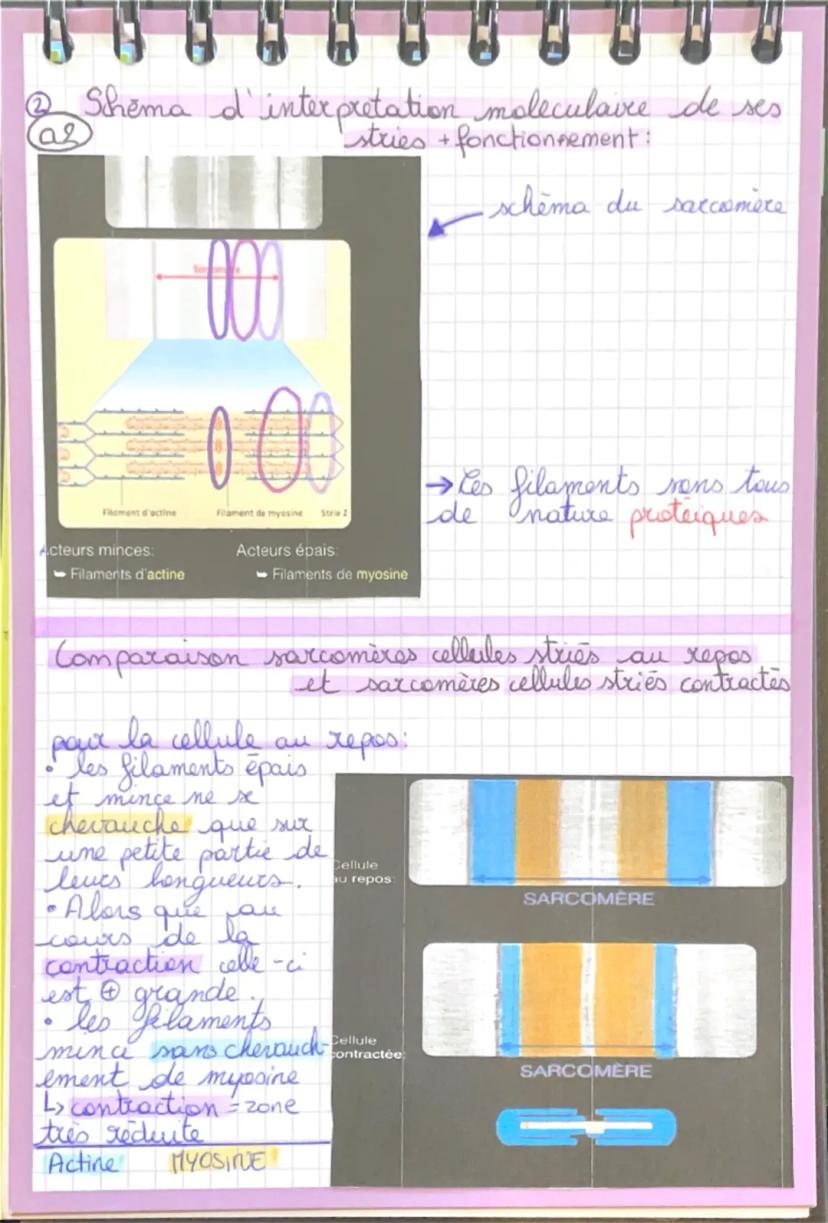 ② Shēma d'interprétation moléculaire de ses
a2 stries + fonctionnement :
schēma du sarcomère
Sarcomère
→ Ces filaments sons tous
de nature protéiques
Filament d'actine Filament de myosine Strie Z
Acteurs minces: Acteurs épais:
➥ Filaments d'actine ➥ Filaments de myosine
Comparaison sarcomères cellules striés au repos
et sarcomères cellules striés contractés
pour la cellule au repos:
• les filaments épais
et mince ne se
chevauche que sur
une petite partie de
leurs longueurs.
• Alors que au
cours de la
contraction celle-ci
est ⊕ grande.
• les filaments
mince sans chevauch-
ement de myosine
↳ contraction = zone
très réduite
Actine MYOSINE
Cellule
au repos:
SARCOMÈRE
Cellule
contractée:
SARCOMÈRE